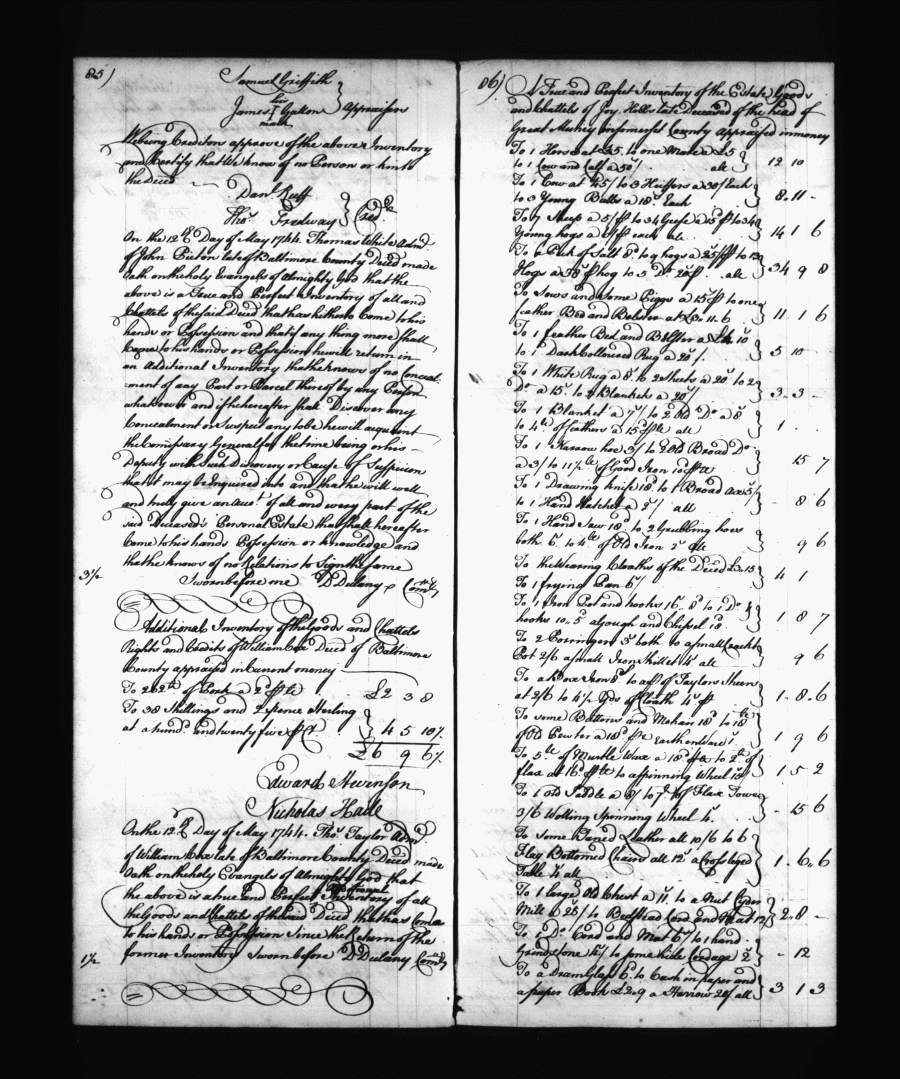 85)
Samuel Griffith
his
James I Gallon } Appraisers
mark
We being Creditors approve of the above Inventory
and Certify that We know of no Person or kin to
the Deced
Danl. Ruff
Thos. Tredway } Creds.
On the 12th Day of May 1744. Thomas White Admr.
of John Picton late of Baltimore County Deced made
Oath on the holy Evangels of Almighty God that the
above is a True and Perfect Inventory of all and
Chattels of the said Deced that has hitherto Come to his
hands or Possession and that if any thing more Shall
Come to his hands or Possession he will return in
an Additional Inventory that he knows of no Conceal-
ment of any Part or Parcel thereof by any Person
whatsoever and if he hereafter shall Discover any
Concealment or suspect any to be he will acquaint
the Comissary General for the time being or his
Deputy with Such Discovery or Cause of Suspicion
that it may be Enquired into and that he will well
and truly give an Acct. of all and every part of the
said Deceased's Personal Estate that shall hereafter
Come to his hands Possession or knowledge and
that he knows of no Relations to Sign the same
3½ Sworn before me D Dulany Comry
Additional Inventory of the Goods and Chattels
Rights and Credits of William Cox Deced of Baltimore
County appraised in Current money
To 262 lb of Pork a 2d ⅌ lb £2 3 8
To 38 Shillings and 2 pence Sterling
at a hund. and twenty five ⅌ Ct. } 4 5 10½
£6 9 6½
Edward Stevenson
Nicholas Hade
On the 12th Day of May 1744. Thos. Taylor Admr.
of William Cox late of Baltimore County Deced made
Oath on the holy Evangels of Almighty God that
the above is a true and Perfect Additional Inventory of all
the Goods and Chattels of the said Deced that has Come
to his hands or Possession Since the Return of the
1½ former Inventory Sworn before D Dulany Comry
86) A True and Perfect Inventory of the Estate Goods
and Chattels of Joy. Hall late Deceased of the head of
Great in Somerset County appraised in money
To 1 Horse at £5. to one Mare a £5
to 1 Cow and Calf a 50/ all } 12 10
To 1 Cow at 45/ to 3 Heiffers a 30/ Each
to 3 Young Bulls a 12/ Each } 8. 11 -
To 7 Sheep a 5/ ⅌ to 34 Geese a 15d ⅌ to 34
Young hogs a ⅌ each all } 14 1 6
To a Peck of Salt 8d to 9 hogs a 25/ ⅌ to 13
Hogs a ⅌ hog to 5 Do. 20/ ⅌ all } 34 9 8
To Sows and Some Piggs a 15/ ⅌ to one
feather Bed and Bolster at £4. 11. 6 } 11. 1 6
To 1 feather Bed and Bolster a £4 10
to 1 Dark Collowred Rug a 20/. } 5 10
To 1 White Rug a 8/ to 2 Sheets a 20/ to 2
Do. a 15/. to 2 Blankets a 20/ } 3. 3 -
To 1 Blanket a 7/ to 2 Old Do. a 8/
to 4 lb of feathers a 15d ⅌ lb all } 1 . .
To 1 Narrow hoe 3/ to 2 Old Broad Do.
a 3/ to 11½ lb of Good Iron 10d ⅌ lb } 15 7
To 1 Drawing knife 18d to 1 Broad Axe 5/
to 1 Hand Hatchet a 2/ all } - 8 6
To 1 Hand Saw 18d to 2 Grubbing hoes
both 6/. to 4 lb of Old Iron 2d all } - 9 6
To the Wearing Cloaths of the Deced £3. 15
To 1 frying Pan 6/ } 4 1
To 1 Iron Pot and hooks 16/. 8d to 1 Do. &
hooks 10. 5 a plough and Chissel 18d } 1 8 7
To 2 Porringers 3/ both to a small
Pot 2/6 a small Iron Skillet 4/ all } 9 6
To a Box Iron 8/ to a ⅌ of Taylors Sheers
at 2/6 to 4½ Yds of Cloath 4/ ⅌ } 1. 8. 6
To some Buttons and Mohair 18d to 18 lb
of Old Pewter a 18d ⅌ lb earthen ware 1/. } 1 9 6
To 5 lb of Murtle Wax a 18d ⅌ lb to 2 lb of
flax at 16d ⅌ lb to a Spinning Wheel 15/ } 1 5 2
To 1 old Saddle a 8/ to 7 lb of Flax Towe
3/6 Wolling Spinning Wheel 4/. } - 15 6
To Some Taned Leather all 10/6 to 6
Flag Bottomed Chairs all 12/ a Cross leged
Table 4/ all } 1. 6. 6
To 1 large Old Chest a 11/. to a Nut Pepper
Mill 6 25/ to Bedstead Cord and Mat 12/ } 2. 8 -
To 1 Do. Cord and Mat 6/ to 1 hand
Grindstone 4/ to some Hide Cordage 2/ } - 12
To a Dram Glass 6d to Cash in paper and
a paper Book £2. 9 a Harrow 20/ all } 3 1 3